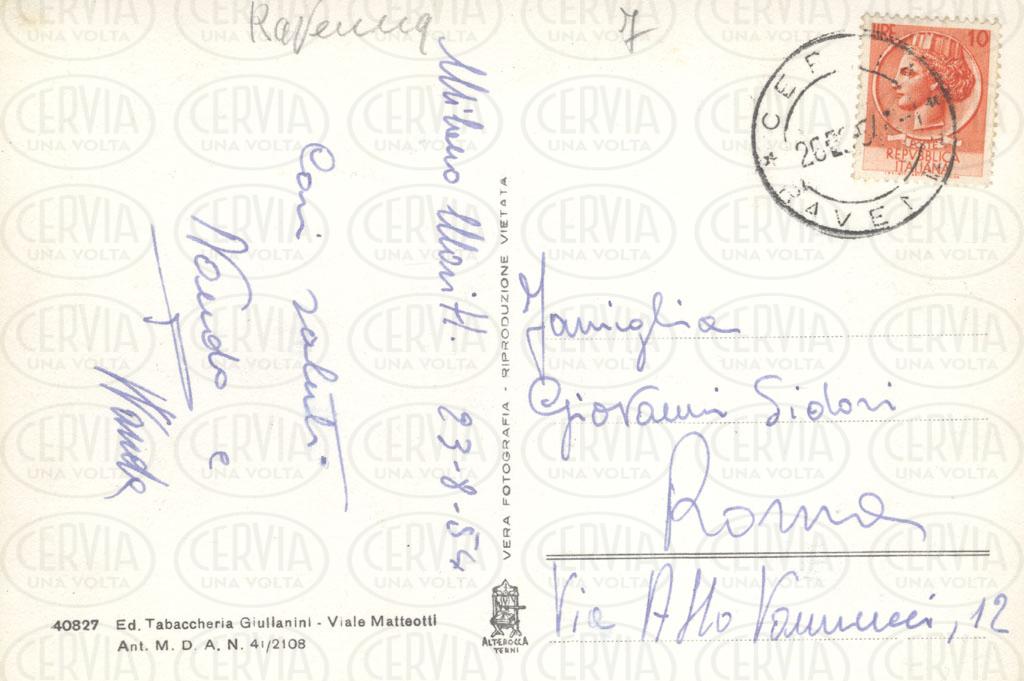 Ravenna
7
LIRE 10
POSTE
REPUBBLICA
ITALIANA
Milano Maritt. 23-8-54
Cari saluti
Nando e
Wanda
VERA FOTOGRAFIA - RIPRODUZIONE VIETATA
Famiglia
Giovanni Sidori
Roma
Via Atto Vannucci, 12
40827 Ed. Tabaccheria Giullanini - Viale Matteotti
Ant. M. D. A. N. 41/2108
ALTEROCCA
TERNI
CERVIA
UNA VOLTA